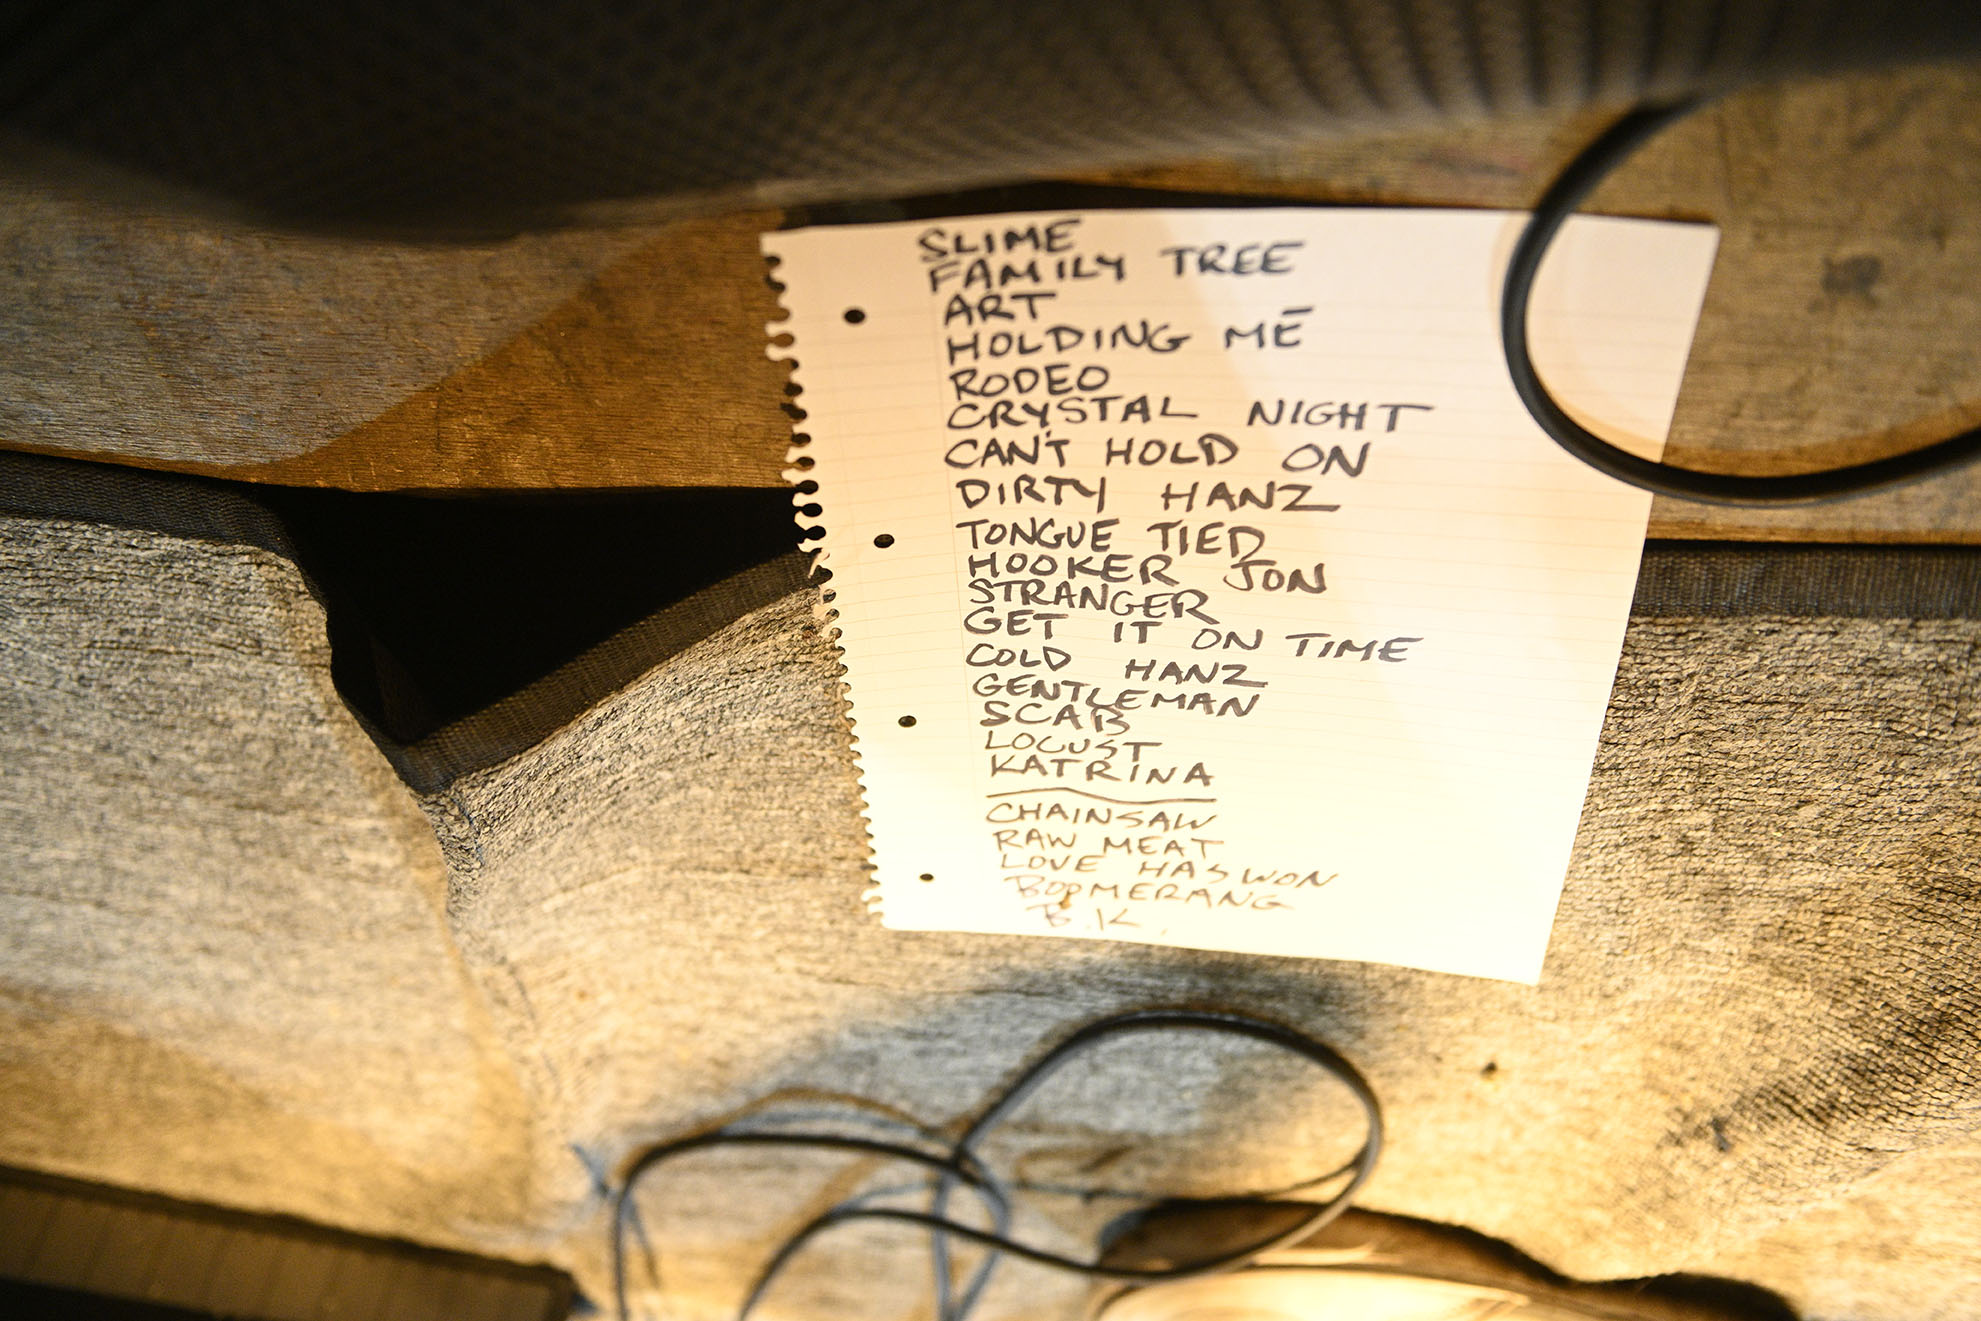 SLIME
FAMILY TREE
ART
HOLDING ME
RODEO
CRYSTAL NIGHT
CAN'T HOLD ON
DIRTY HANZ
TONGUE TIED
HOOKER JON
STRANGER
GET IT ON TIME
COLD HANZ
GENTLEMAN
SCAB
LOCUST
KATRINA
CHAINSAW
RAW MEAT
LOVE HAS WON
BOOMERANG
B.K.